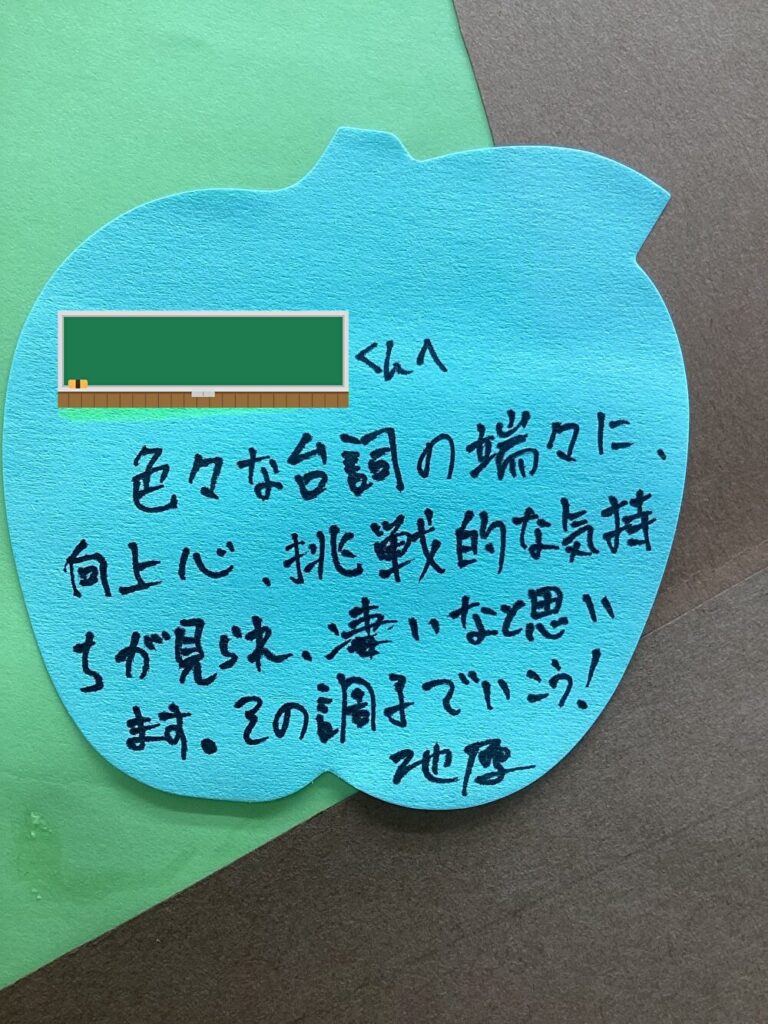 くんへ
色々な台詞の端々に、
向上心、挑戦的な気持
ちが見られ、凄いなと思い
ます。その調子でいこう！
池原